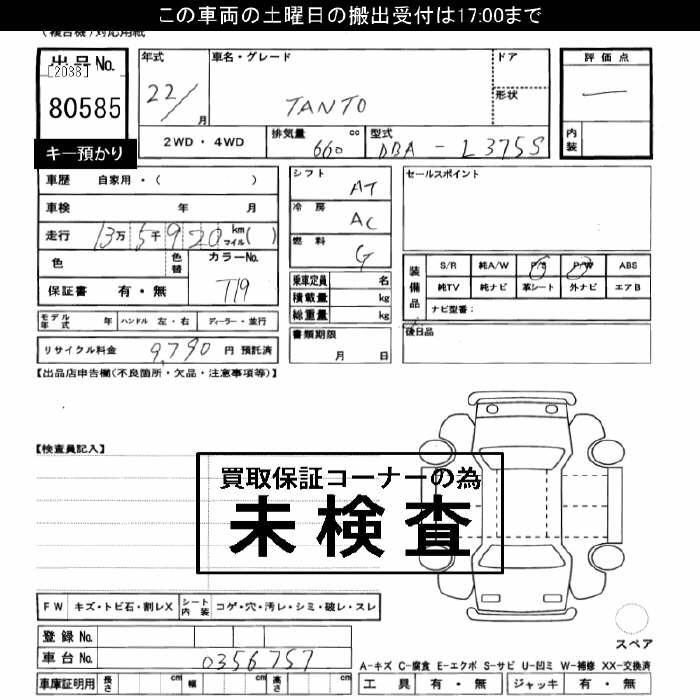 この車両の土曜日の搬出受付は17:00まで
(複合機)対応用紙
出品No.
[2038]
80585
キー預かり
年式
22/
月
車名・グレード
TANTO
ドア
形状
評価点
—
内装
2WD・4WD
排気量
660
cc
型式
DBA-L375S
車歴 自家用・( )
車検 年 月
走行 13万5千920 km マイル( )
色
色替
カラーNo.
T19
保証書 有・無
シフト AT
冷房 AC
燃料 G
乗車定員 名
積載量 kg
総重量 kg
書類期限
月 日
セールスポイント
装備品
S/R 純A/W P/S P/W ABS
純TV 純ナビ 革シート 外ナビ エアB
ナビ型番:
後日品
モデル年式 年 ハンドル 左・右 ディーラー・並行
リサイクル料金 9,790 円 預託済
【出品店申告欄(不良箇所・欠品・注意事項等)】
【検査員記入】
買取保証コーナーの為
未検査
FW キズ・トビ石・割レX シート内装 コゲ・穴・汚レ・シミ・破レ・スレ
登録No.
車台No. 0356757
スペア
A-キズ C-腐食 E-エクボ S-サビ U-凹ミ W-補修 XX-交換済
車庫証明用 長さ cm 幅 cm 高さ cm
工具 有・無 ジャッキ 有・無